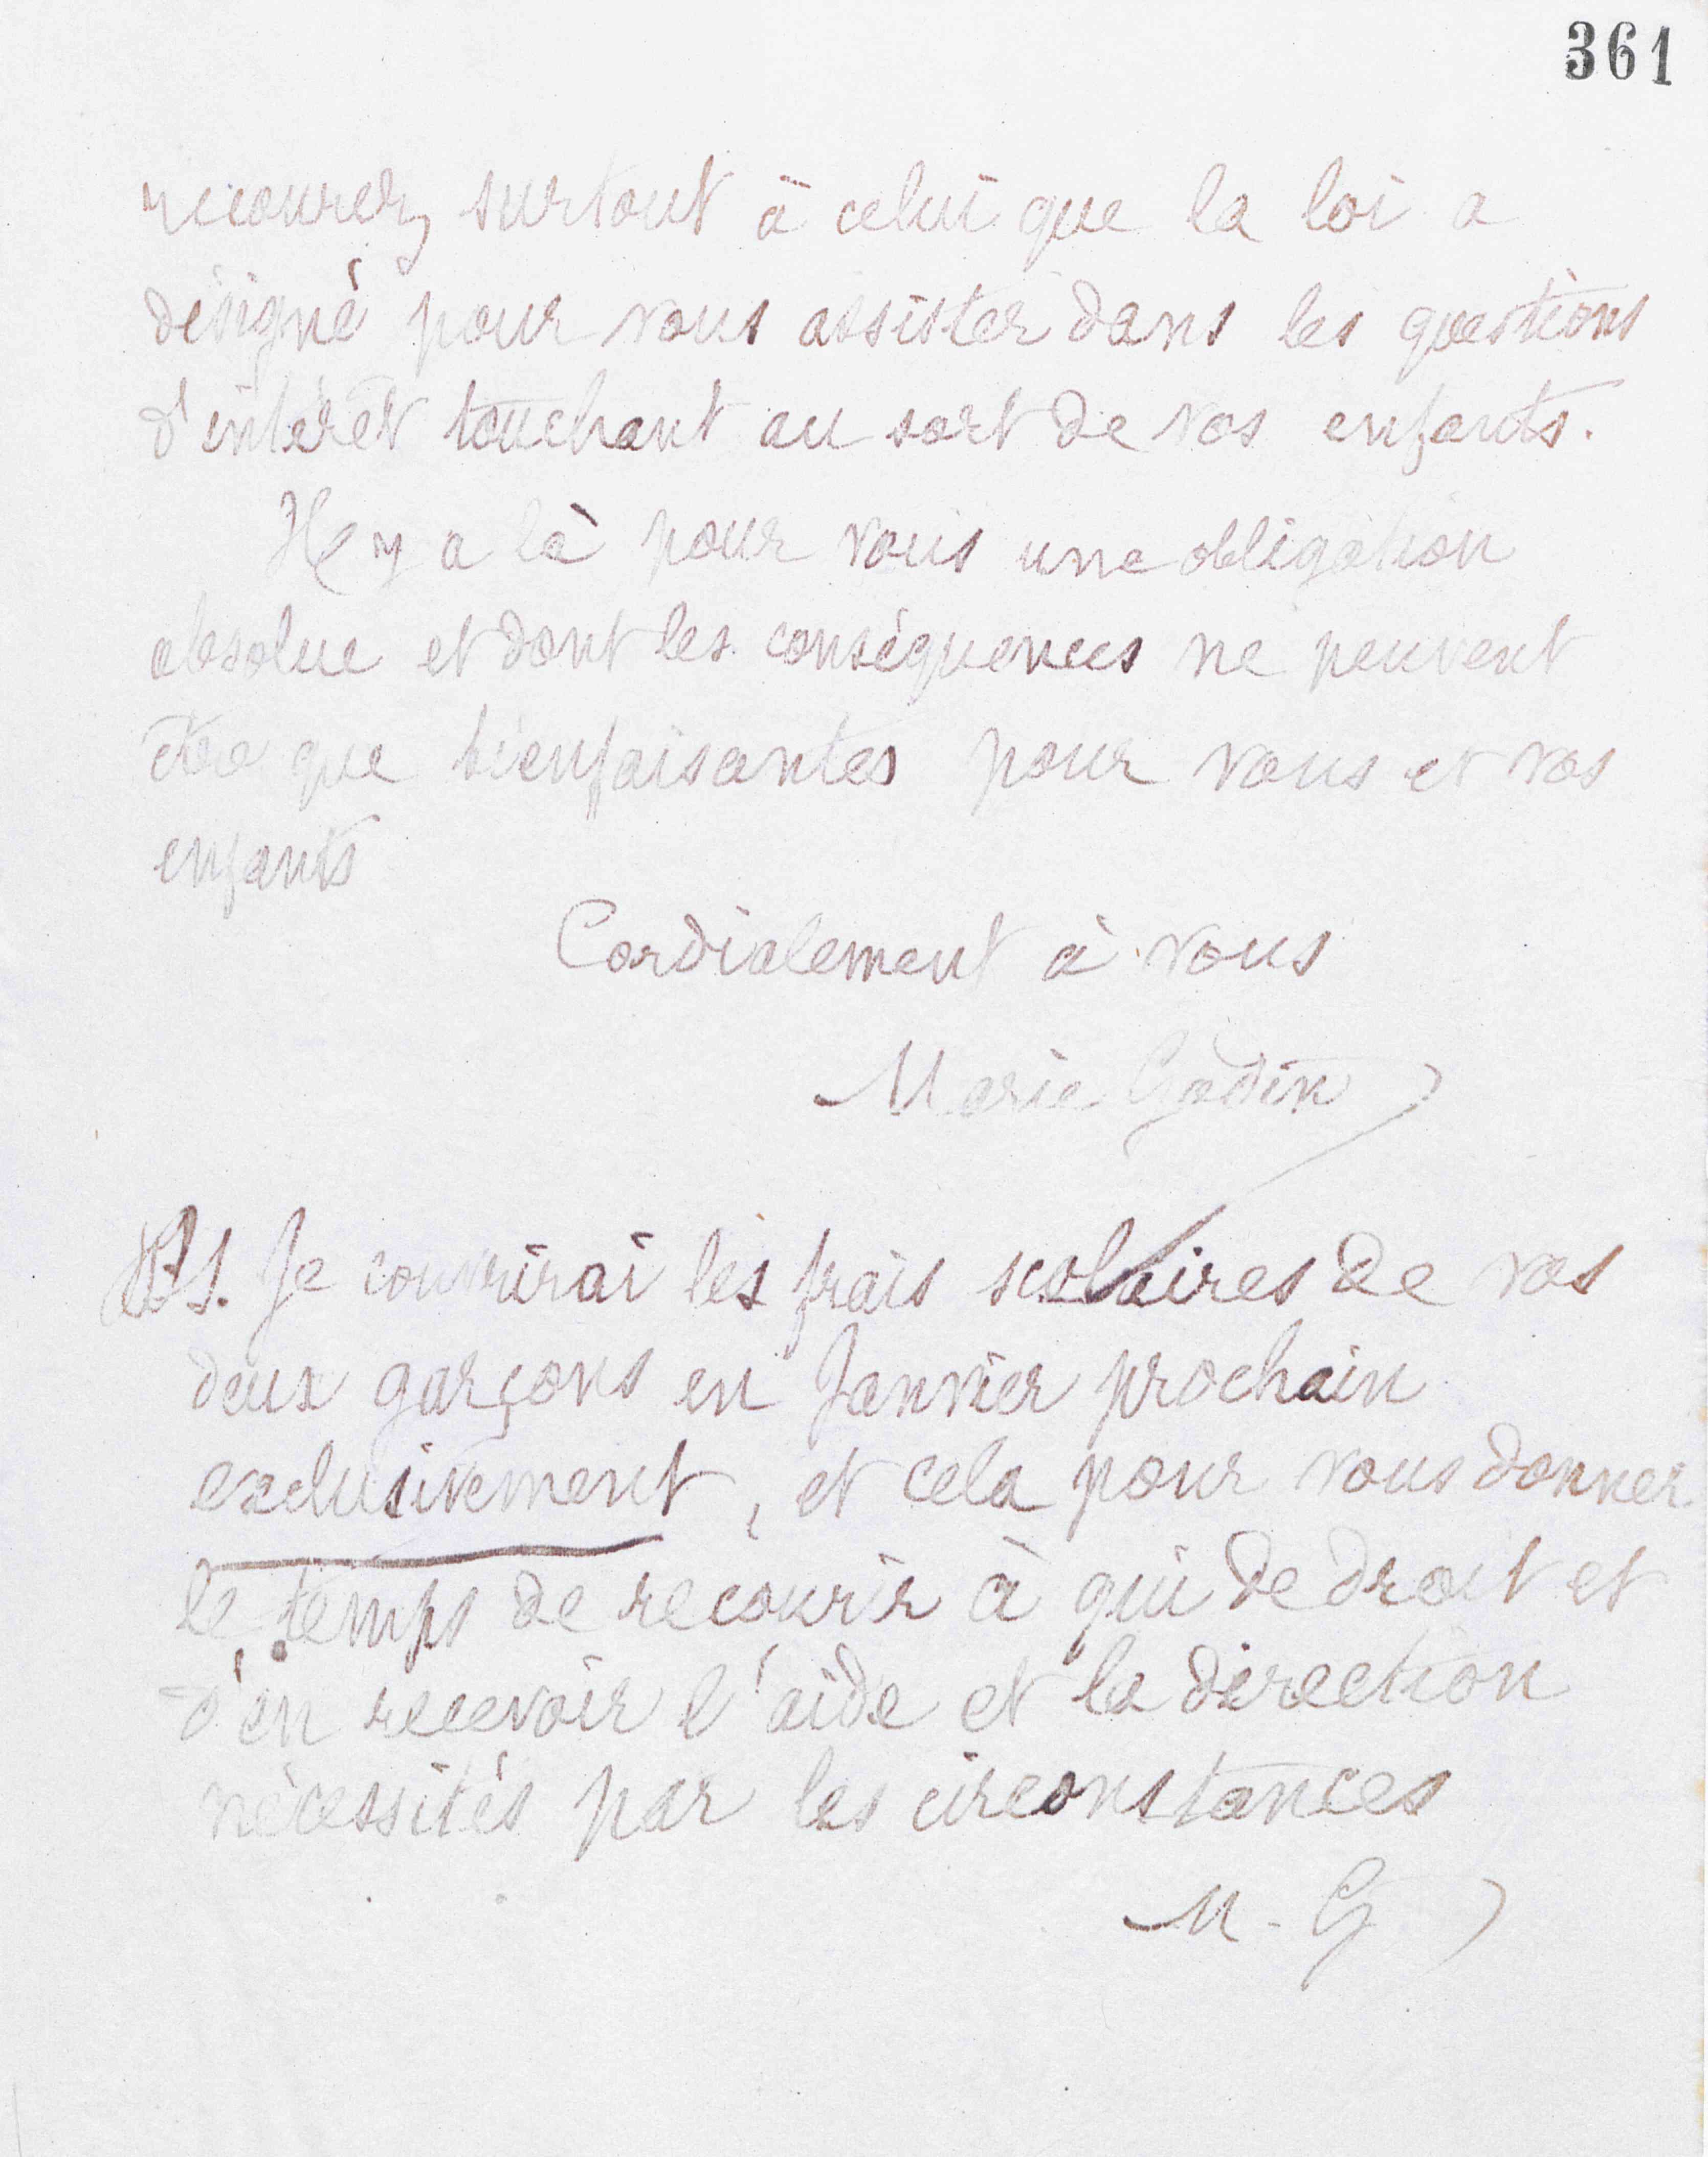 361
recourez surtout à celui que la loi a
désigné pour vous assister dans les questions
d'intérêt touchant au sort de vos enfants.
Il y a là pour vous une obligation
absolue et dont les conséquences ne peuvent
être que bienfaisantes pour vous et vos
enfants
Cordialement à vous
Marie Godin
PS. Je couvrirai les frais scolaires de vos
deux garçons en Janvier prochain
exclusivement, et cela pour vous donner
le temps de recourir à qui de droit et
d'en recevoir l'aide et la direction
nécessités par les circonstances
M. G